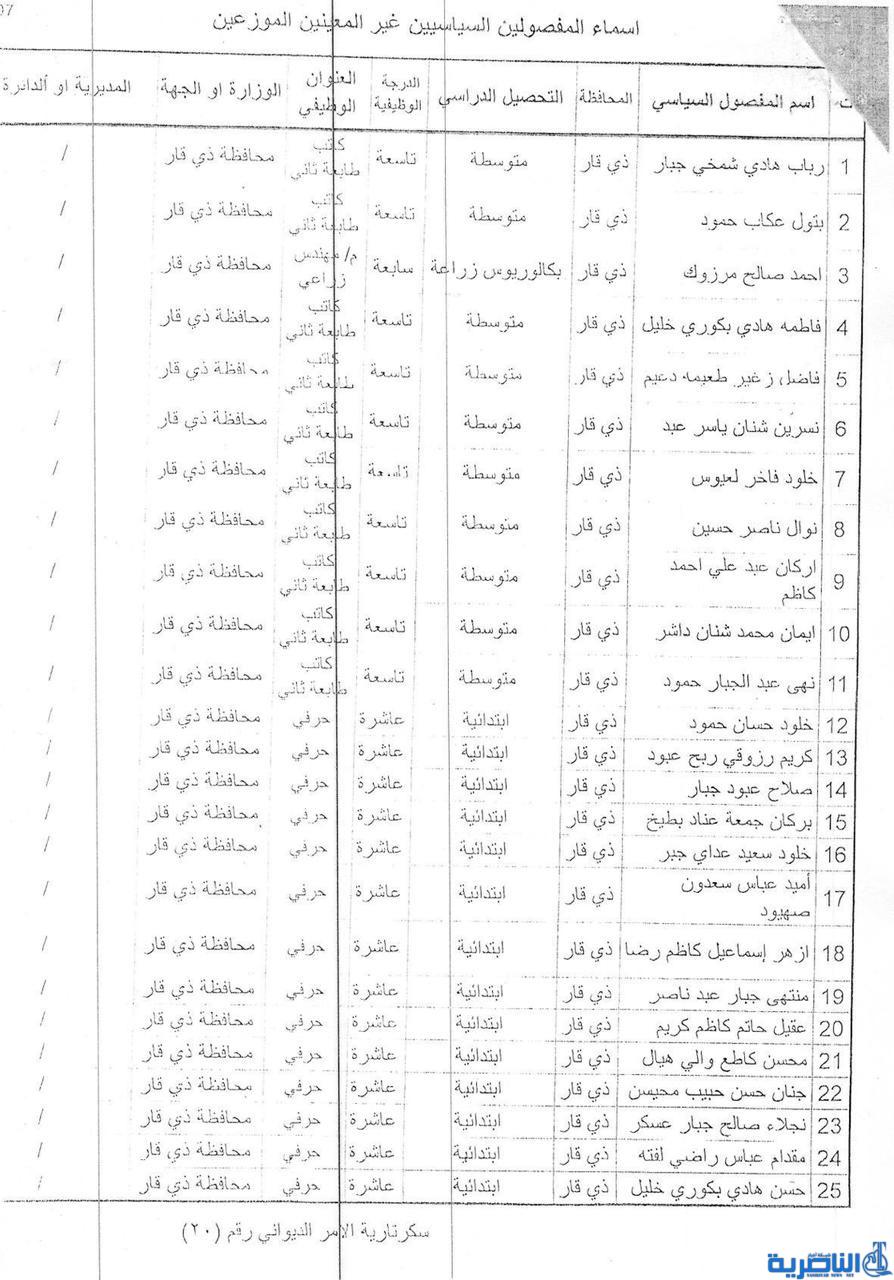 07
اسماء المفصولين السياسيين غير المعينين الموزعين
ت اسم المفصول السياسي المحافظة التحصيل الدراسي الدرجة الوظيفية العنوان الوظيفي الوزارة او الجهة المديرية او الدائرة
1 رباب هادي شمخي جبار ذي قار متوسطة تاسعة كاتب طابعة ثاني محافظة ذي قار /
2 بتول عكاب حمود ذي قار متوسطة تاسعة كاتب طابعة ثاني محافظة ذي قار /
3 احمد صالح مرزوك ذي قار بكالوريوس زراعة سابعة م/ مهندس زراعي محافظة ذي قار /
4 فاطمه هادي بكوري خليل ذي قار متوسطة تاسعة كاتب طابعة ثاني محافظة ذي قار /
5 فاضل زغير طعيمه دعيم ذي قار متوسطة تاسعة كاتب طابعة ثاني محافظة ذي قار /
6 نسرين شنان ياسر عبد ذي قار متوسطة تاسعة كاتب طابعة ثاني محافظة ذي قار /
7 خلود فاخر لعيوس ذي قار متوسطة تاسعة كاتب طابعة ثاني محافظة ذي قار /
8 نوال ناصر حسين ذي قار متوسطة تاسعة كاتب طابعة ثاني محافظة ذي قار /
9 اركان عبد علي احمد كاظم ذي قار متوسطة تاسعة كاتب طابعة ثاني محافظة ذي قار /
10 ايمان محمد شنان داشر ذي قار متوسطة تاسعة كاتب طابعة ثاني محافظة ذي قار /
11 نهى عبد الجبار حمود ذي قار متوسطة تاسعة كاتب طابعة ثاني محافظة ذي قار /
12 خلود حسان حمود ذي قار ابتدائية عاشرة حرفي محافظة ذي قار /
13 كريم رزوقي ربح عبود ذي قار ابتدائية عاشرة حرفي محافظة ذي قار /
14 صلاح عبود جبار ذي قار ابتدائية عاشرة حرفي محافظة ذي قار /
15 بركان جمعة عناد بطيخ ذي قار ابتدائية عاشرة حرفي محافظة ذي قار /
16 خلود سعيد عداي جبر ذي قار ابتدائية عاشرة حرفي محافظة ذي قار /
17 أميد عباس سعدون صهيود ذي قار ابتدائية عاشرة حرفي محافظة ذي قار /
18 ازهر إسماعيل كاظم رضا ذي قار ابتدائية عاشرة حرفي محافظة ذي قار /
19 منتهى جبار عبد ناصر ذي قار ابتدائية عاشرة حرفي محافظة ذي قار /
20 عقيل حاتم كاظم كريم ذي قار ابتدائية عاشرة حرفي محافظة ذي قار /
21 محسن كاطع والي هيال ذي قار ابتدائية عاشرة حرفي محافظة ذي قار /
22 جنان حسن حبيب محيسن ذي قار ابتدائية عاشرة حرفي محافظة ذي قار /
23 نجلاء صالح جبار عسكر ذي قار ابتدائية عاشرة حرفي محافظة ذي قار /
24 مقدام عباس راضي لفته ذي قار ابتدائية عاشرة حرفي محافظة ذي قار /
25 حسن هادي بكوري خليل ذي قار ابتدائية عاشرة حرفي محافظة ذي قار /
سكرتارية الامر الديواني رقم (٢٠)
الناصرية